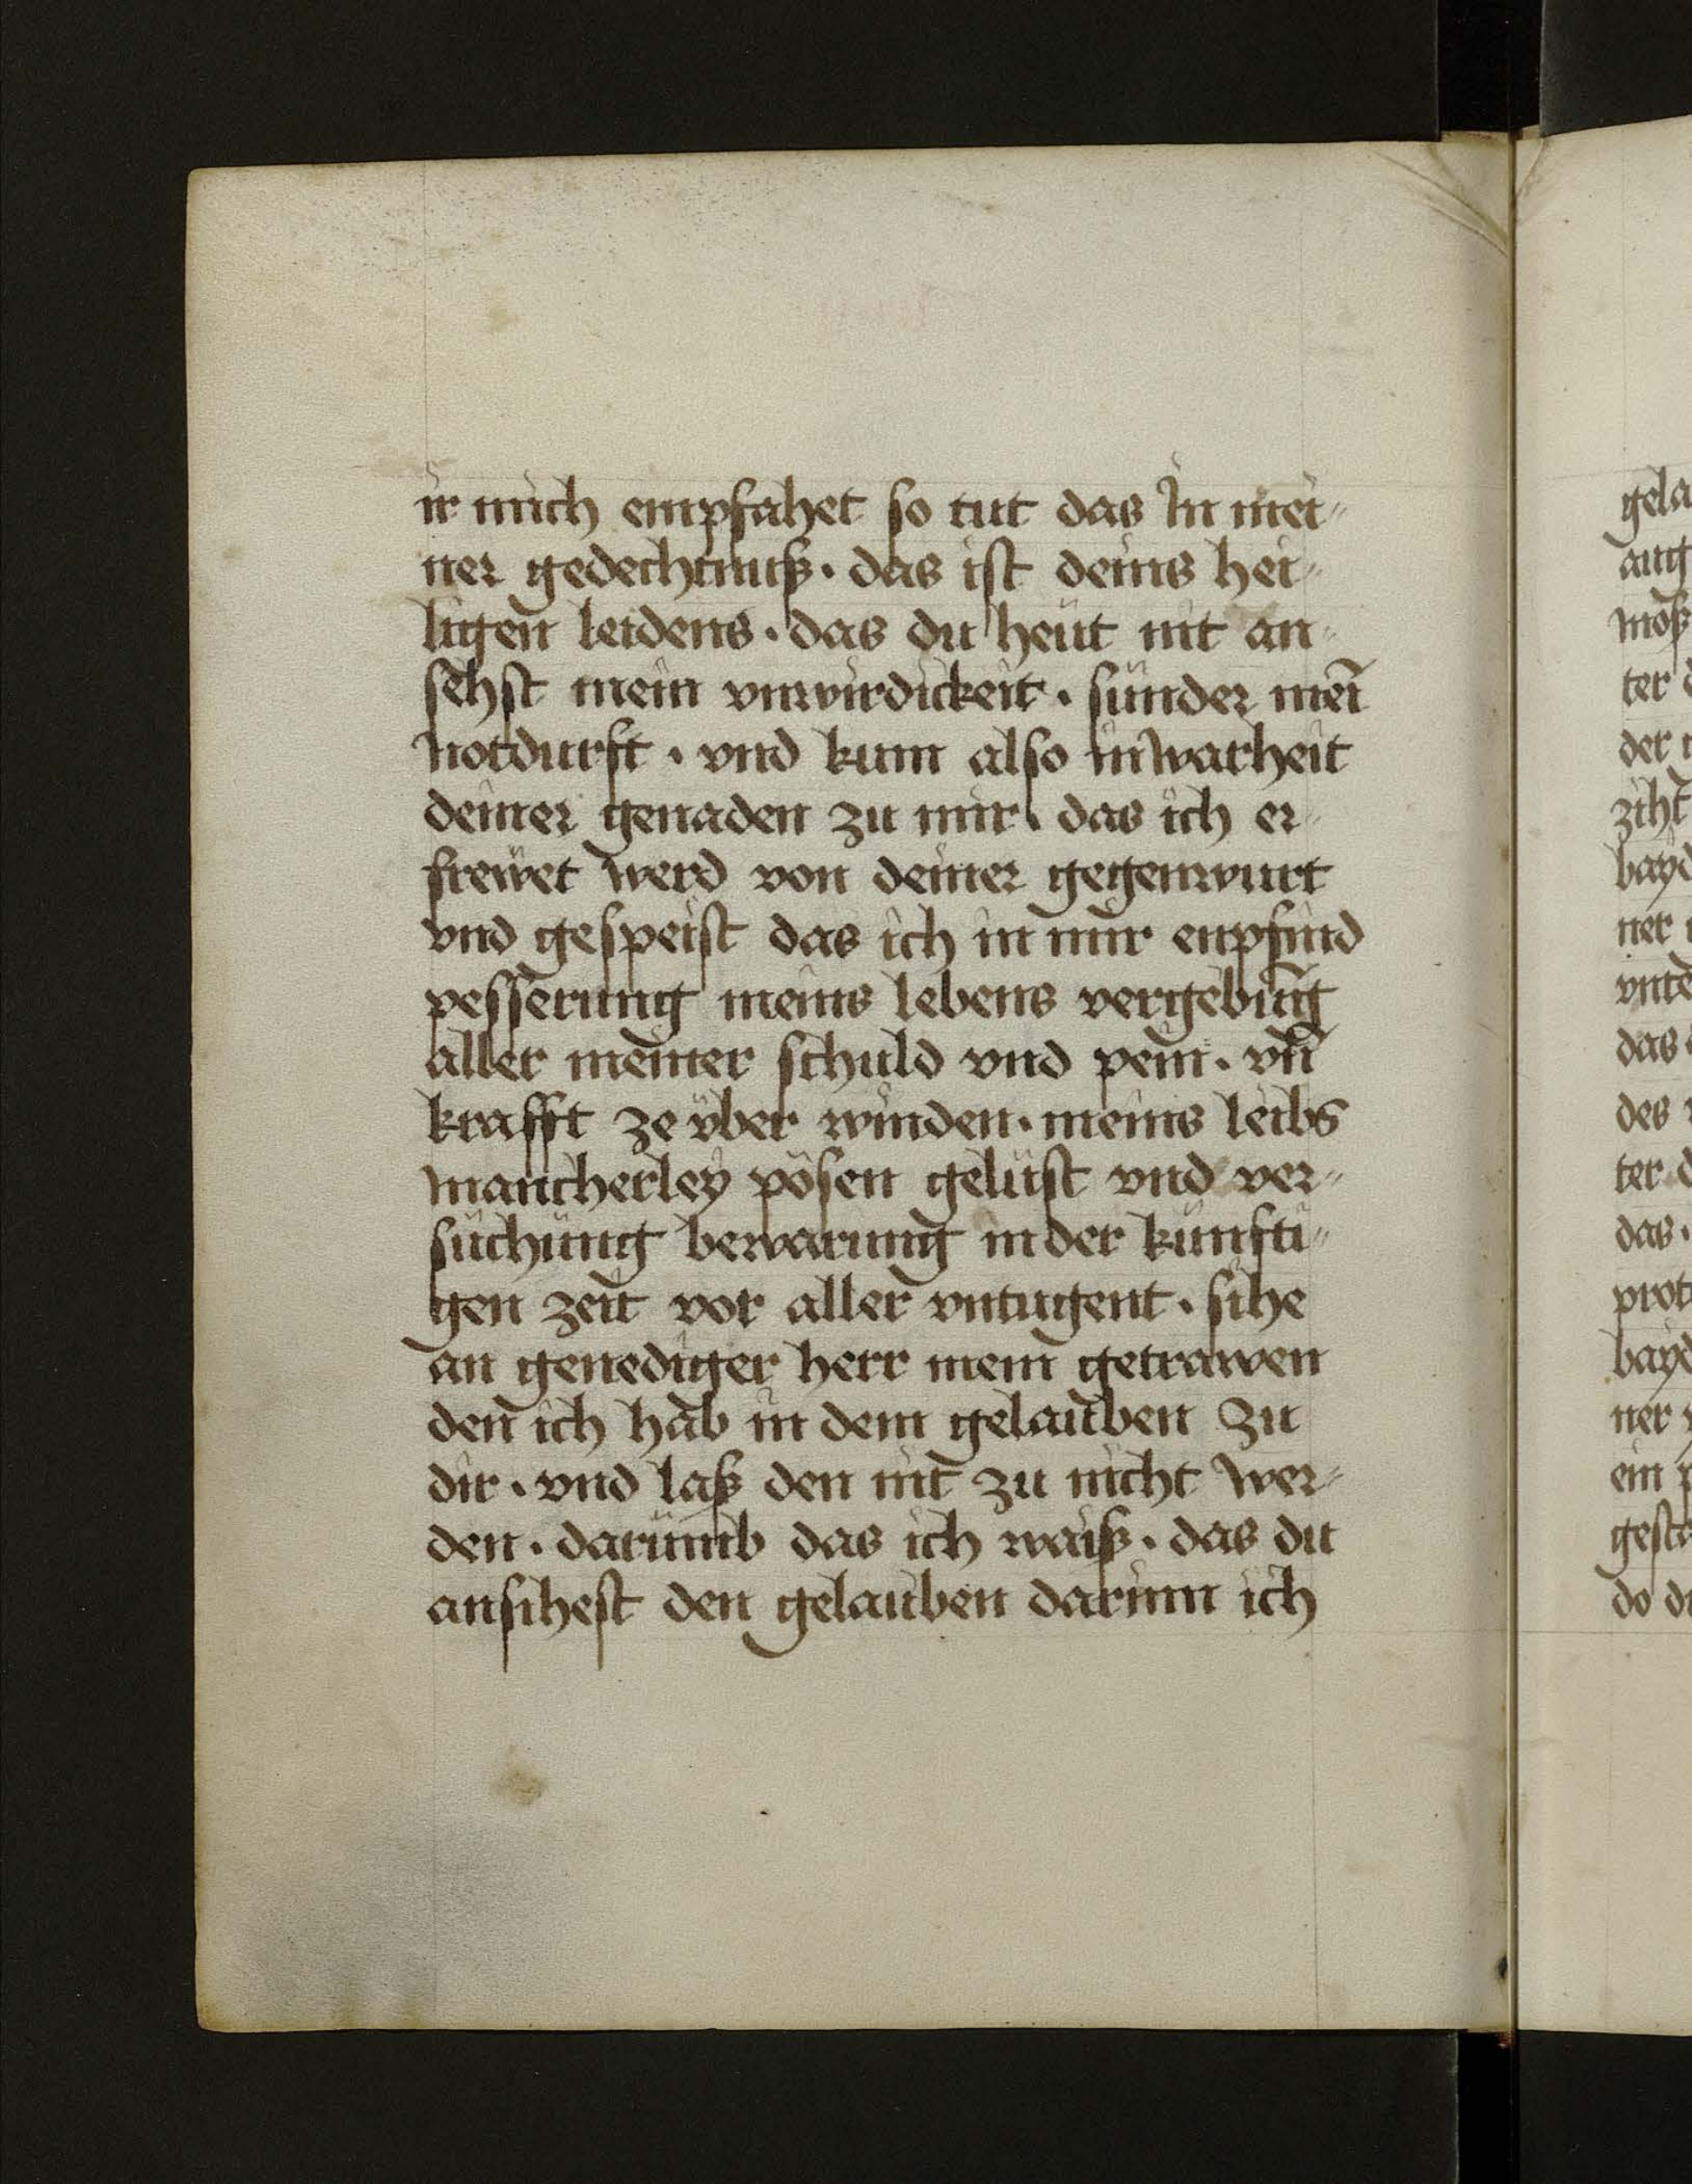 ir mich empfahet so tut das In mei⸗
ner gedechtnuß · das ist deins hei⸗
ligen leidens · das du heüt nit an⸗
sehst mein vnwirdickeit · sünder mei̅
notdurft · vnd kum also in warheit
deiner genaden zu mir · das ich er⸗
frewet werd von deiner gegenwurt
vnd gespeist das ich in mir enpfind
pesserung meins lebens vergebu̅g
aller meiner schuld vnd pein · vn̅
krafft ze vber winden · meins leibs
mancherley pösen gelüst vnd ver⸗
süchüng bewarung in der künfti⸗
gen zeit vor aller vntugent · sihe
an genediger herr mein getrawen
den ich hab in dem gelauben zu
dir · vnd laß den nit zu nicht wer⸗
den · darümb das ich waiß · das du
ansihest den gelauben darinn ich
gela
mosz
ter d
der
ziht
bayd
ner
vnte
das
des
ter d
das ·
prot
bayd
ner
ein p
gesta
do du